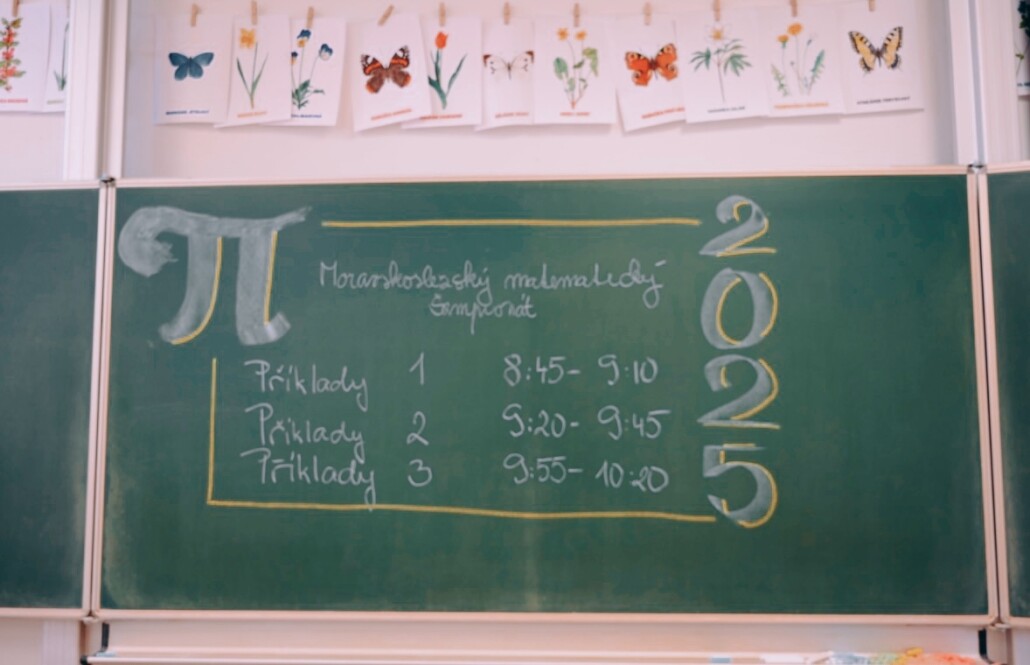 π
Moravskoslezský matematický
Šampionát
Příklady 1 8:45- 9:10
Příklady 2 9:20- 9:45
Příklady 3 9:55- 10:20
2025